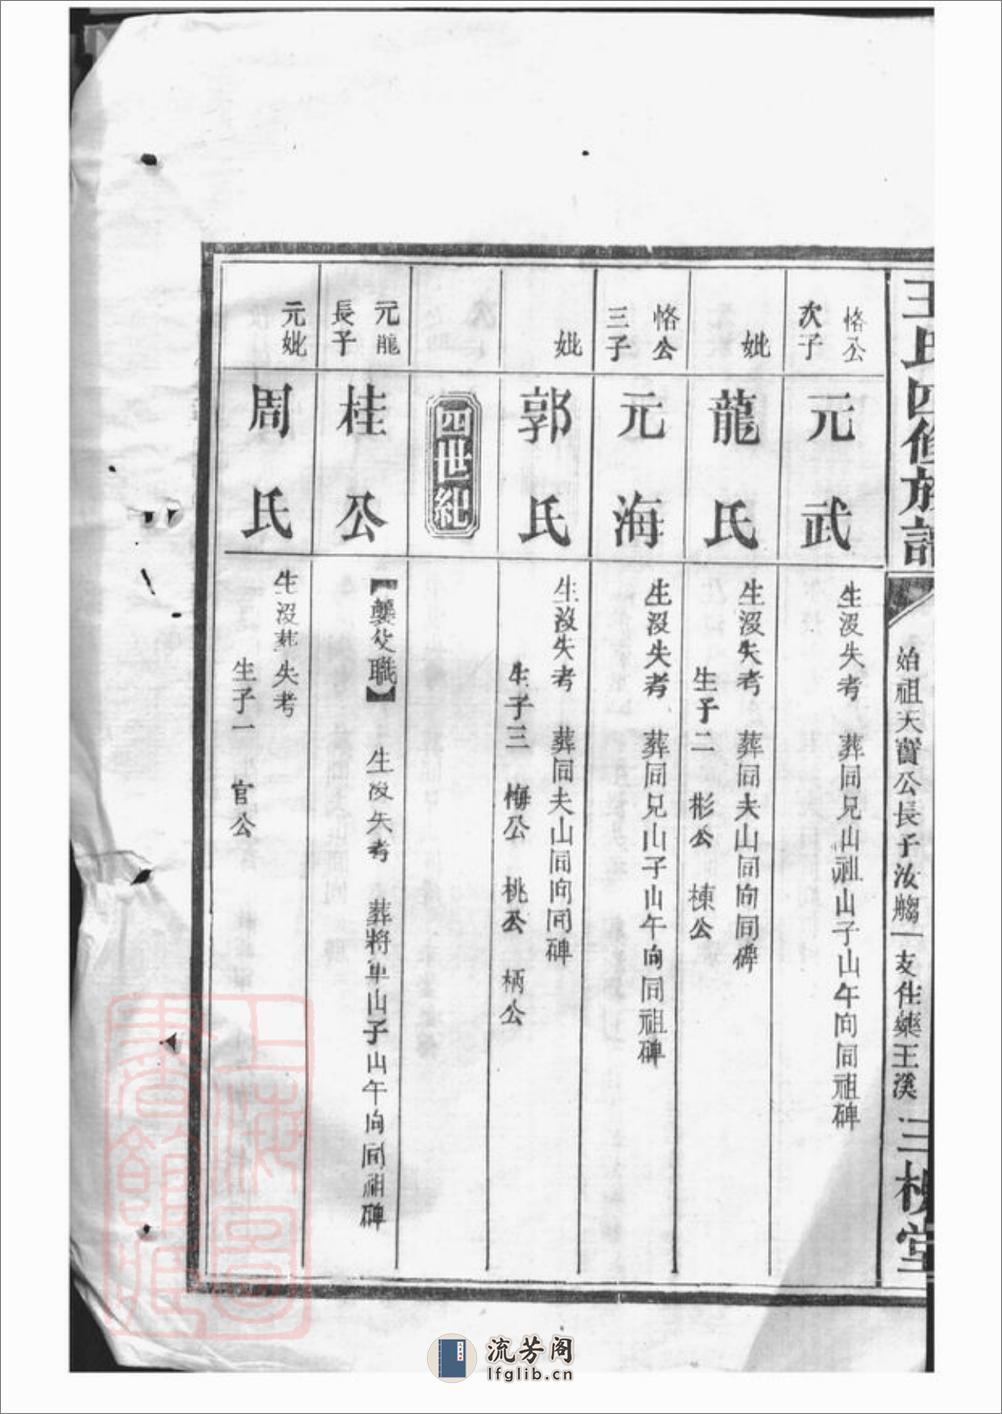 王氏四修族譜
始祖天寶公長子汝觴一支住藥王溪
三槐堂
恪公
次子
元武
生沒失考 葬同兄山祖山子山午向同祖碑
妣
龍氏
生沒失考 葬同夫山同向同碑
生子二 彬公 棟公
恪公
三子
元海
生沒失考 葬同兄山子山午向同祖碑
妣
郭氏
生沒失考 葬同夫山同向同碑
生子三 梅公 桃公 柄公
四世紀
元龍
長子
桂公
【襲父職】 生沒失考 葬將軍山子山午向同祖碑
元妣
周氏
生沒葬失考
生子一 官公
上海圖書館藏
流芳阁
lfglib.cn